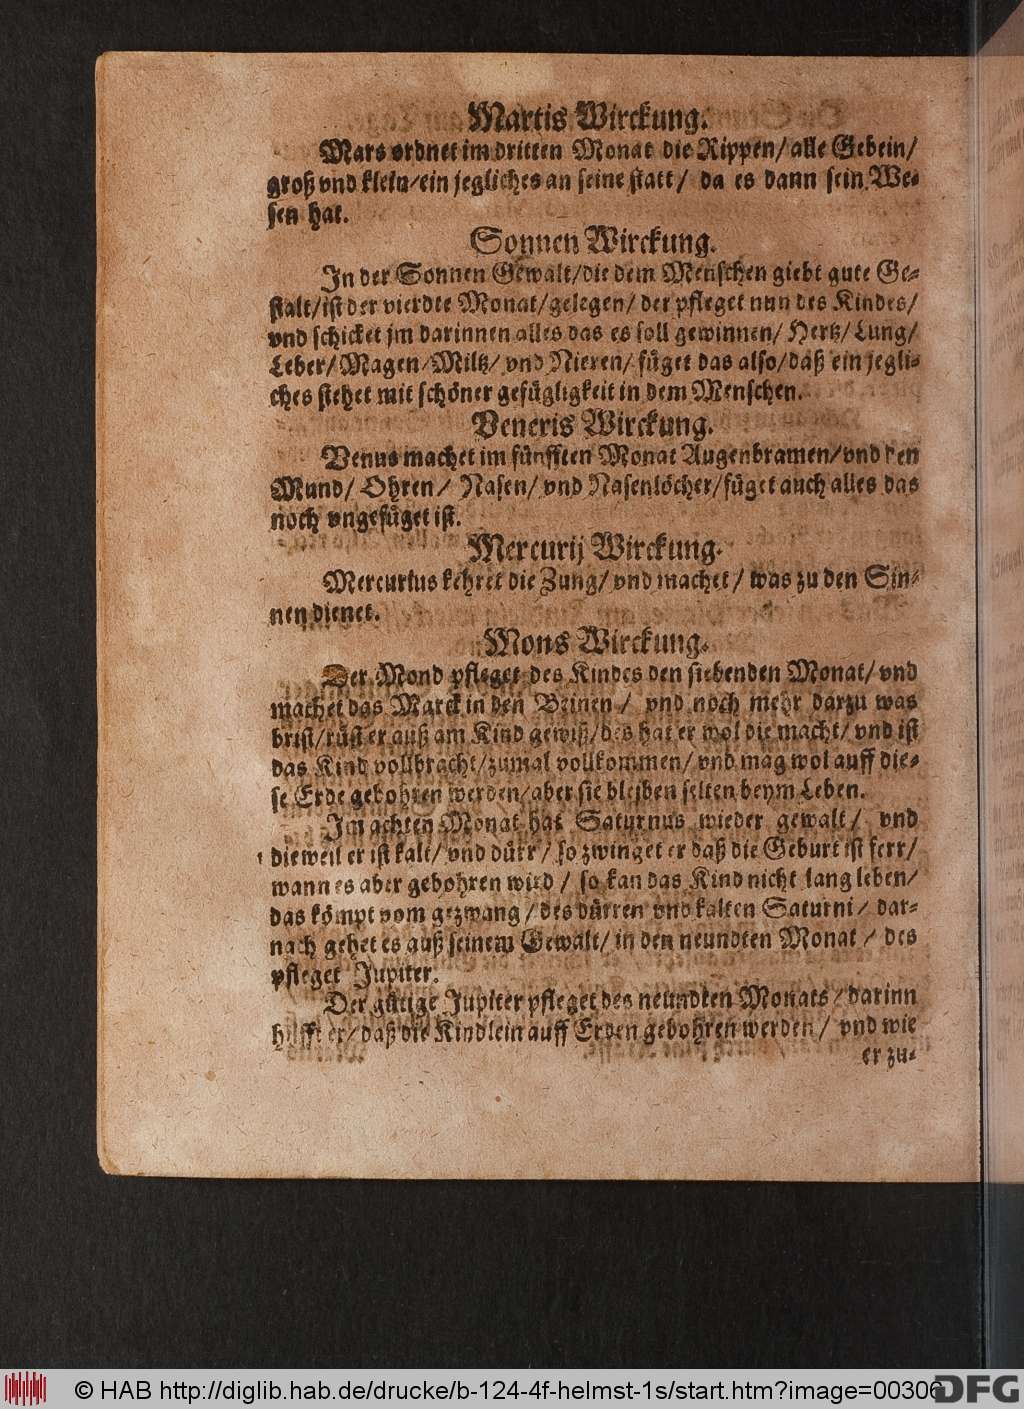 Martis Wirckung.
Mars ordnet im dritten Monat die Rippen/ alle Gebein/
groß vnd klein/ ein jegliches an seine statt/ da es dann sein We-
sen hat.
Sonnen Wirckung.
In der Sonnen Gewalt/ die dem Menschen giebt gute Ge-
stalt/ ist der vierdte Monat/ gelegen/ der pfleget nun des Kindes/
vnd schicket jm darinnen alles das es soll gewinnen/ Hertz/ Lung/
Leber/ Magen/ Miltz/ vnd Nieren/ füget das also/ daß ein jegli-
ches stehet mit schöner gefügligkeit in dem Menschen.
Veneris Wirckung.
Venus machet im fünfften Monat Augenbramen/ vnd den
Mund/ Ohren/ Nasen/ vnd Nasenlöcher/ füget auch alles das
noch vngefüget ist.
Mercurij Wirckung.
Mercurius kehret die Zung/ vnd machet/ was zu den Sin-
nen dienet.
Mons Wirckung.
Der Mond pfleget des Kindes den siebenden Monat/ vnd
machet das Marck in den Beinen/ vnd noch mehr darzu was
brist/ rüst er auß am Kind gewiß/ des hat er wol die macht/ vnd ist
das Kind vollbracht/ zumal vollkommen/ vnd mag wol auff die-
se Erde gebohren werden/ aber sie bleiben selten beym Leben.
Im achten Monat hat Saturnus wieder gewalt/ vnd
dieweil er ist kalt/ vnd dürr/ so zwinget er daß die Geburt ist ferr/
wann es aber gebohren wird/ so kan das Kind nicht lang leben/
das kömpt vom gezwang/ des dürren vnd kalten Saturni/ dar-
nach gehet es auß seinem Gewalt/ in den neundten Monat/ des
pfleget Jupiter.
Der gütige Jupiter pfleget des neundten Monats/ darinn
hilfft er/ daß die Kindlein auff Erden gebohren werden/ vnd wie
er zu-
© HAB http://diglib.hab.de/drucke/b-124-4f-helmst-1s/start.htm?image=00306
DFG